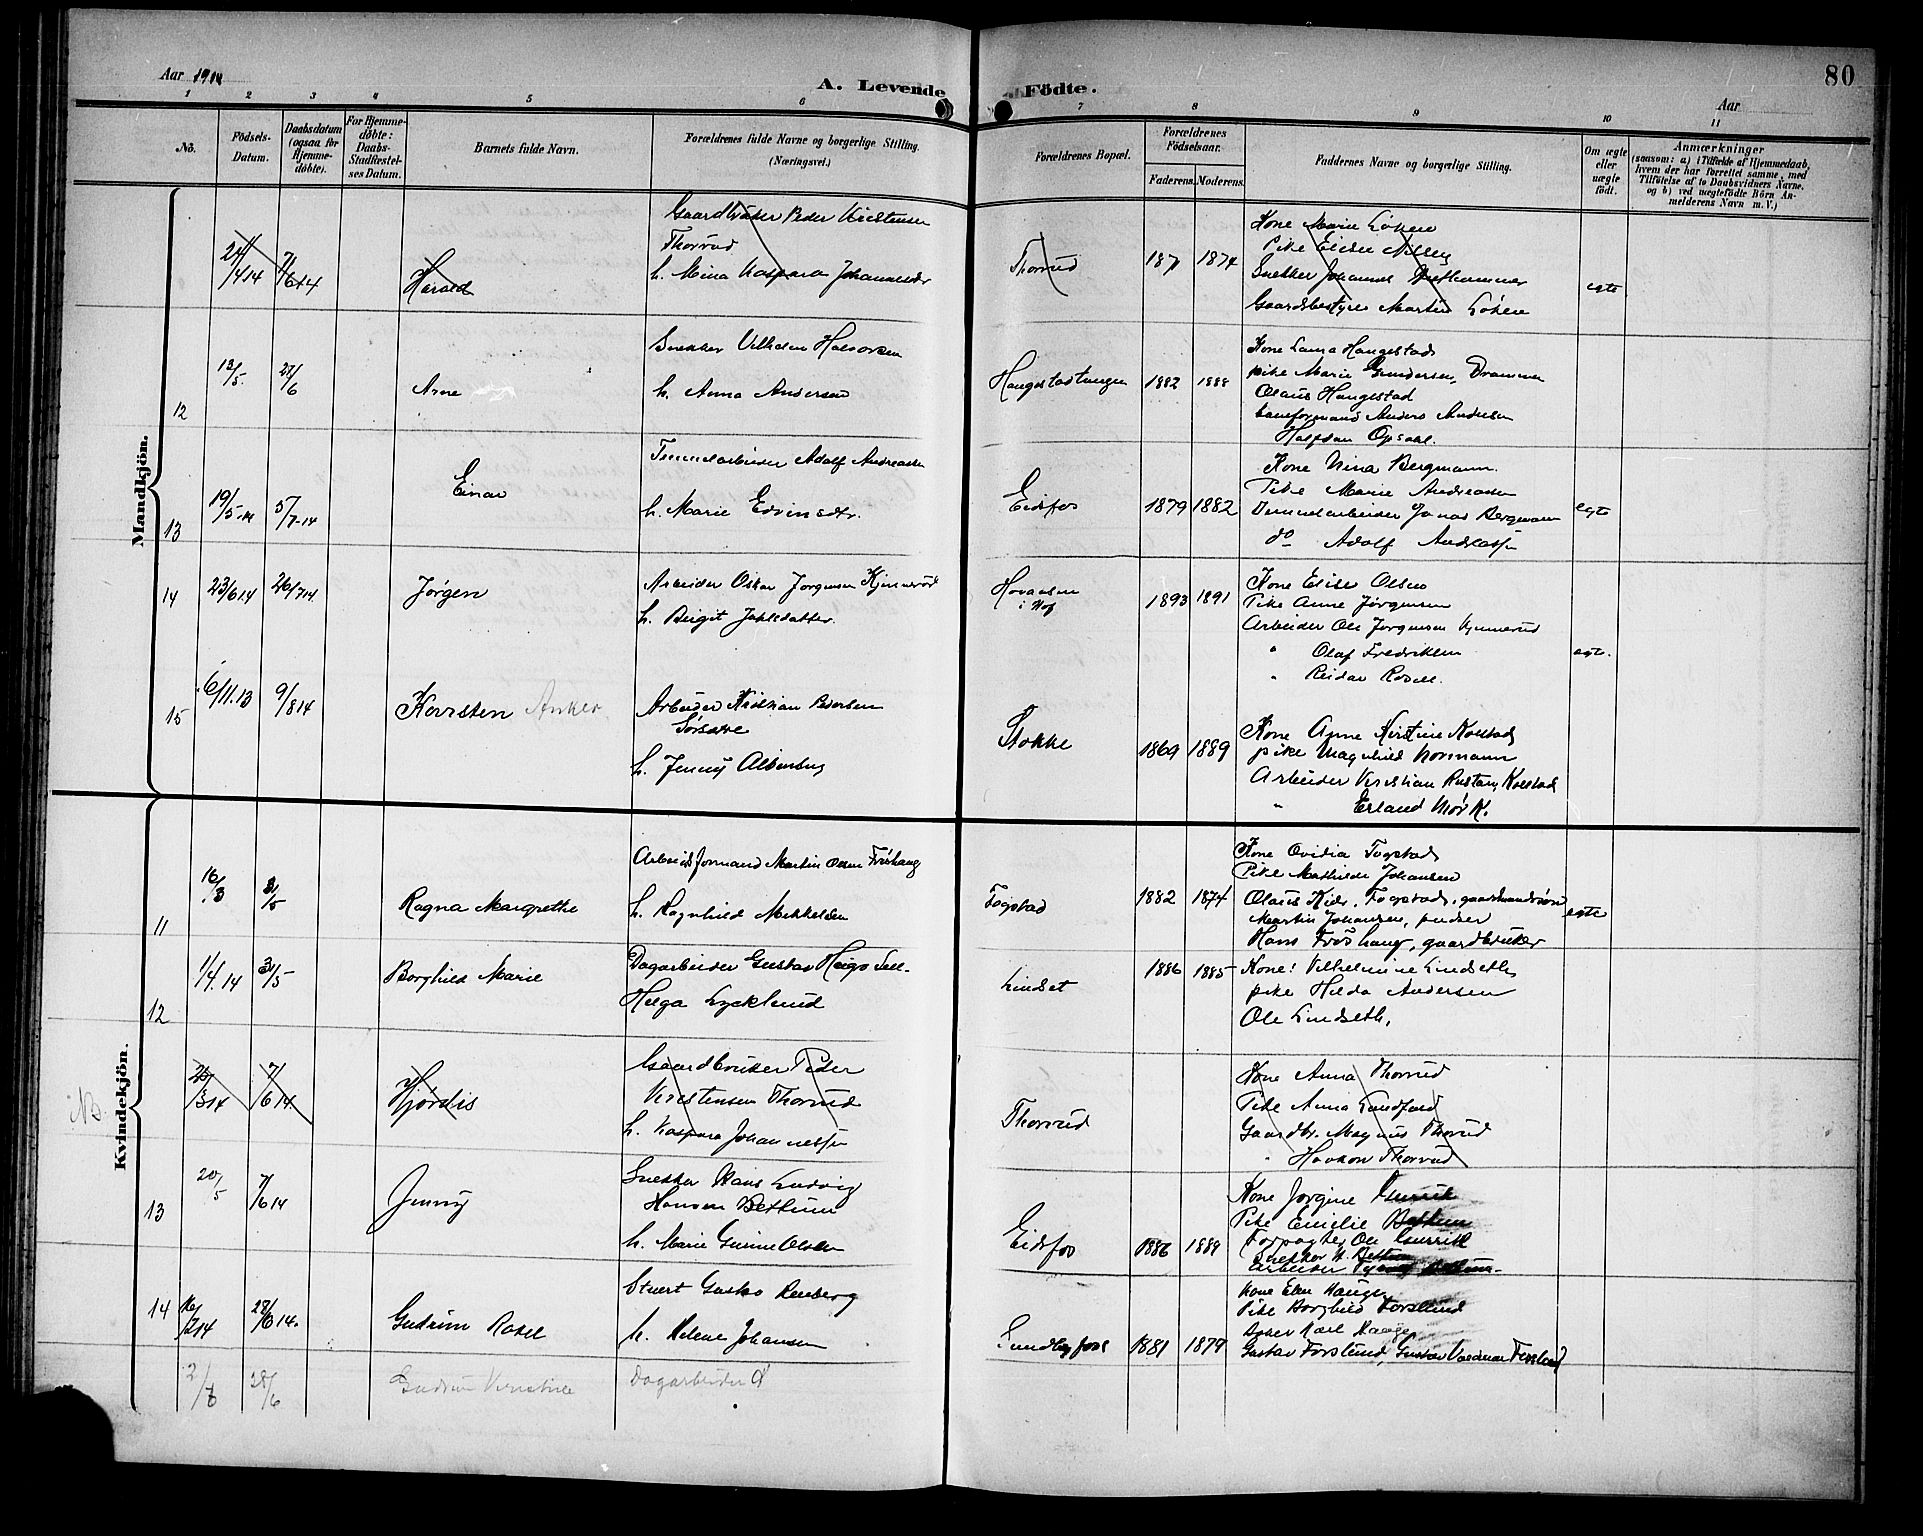 Aar 1914
A. Levende
Födte.
80
Aar
1 2 3 4 5 6 7 8 9 10 11
No.
Födsels-Datum.
Daabsdatum (ogsaa for Hjemmedöbte).
For Hjemmedöbte: Daabs-Stadfæstelses Datum.
Barnets fulde Navn.
Forældrenes fulde Navne og borgerlige Stilling.
(Næringsvei.)
Forældrenes Bopæl.
Forældrenes Födselsaar.
Faderens. Moderens.
Faddernes Navne og borgerlige Stilling.
Om ægte eller uægte födt.
Anmærkninger
(saasom: a) i Tilfælde af Hjemmedaab,
hvem der har forrettet samme, med
Tilföielse af to Daabsvidners Navne,
og b) ved uægtefödte Börn An-
melderens Navn m. V.)
Mandkjön.
24/4 14 7/6 14 Harald
Gaardbruker Peder Kristensen
Thorrud
h. Mina Kaspara Johannesdr
Thorrud 187 1874
Kone Marie Løken
Pike Elise Nilsen
Snekker Johannes
Gaardsbestyrer Martin Løken
egte
12 12/5 21/6 Arne
Snekker Vilhelm Halvorsen
h. Anna Andersen
Haugestadtangen 1882 1888
Kone Laura Haugestad
pike Marie Gundersen, Drammen
Olaus Haugestad
baneformand Anders Andersen
Halfdan Opsahl.
13 19/5-14 5/7-14 Einar
Tømmelarbeider Adolf Andreassen
h. Marie Edvinsdtr.
Eidsfos 1879 1882
Kone Nina Bergmann.
Pike Marie Andreassen
Jonas Bergmann
do Adolf Andreassen
egte
14 23/6 14 26/7 14 Jørgen
Arbeider Oskar Jørgensen Kjinnerød
h. Birgit Jahlsdatter.
Hovaasen
i Hof
1893 1891
Kone Elise Olsen
Pike Anne Jørgensen
Arbeider Ole Jørgensen Kjinnerud
" Olaf Fredriksen
" Reidar
egte.
15 6/11.13 9/8 14 Karsten Anker
Arbeider Kristian Pedersen
h. Jenny
Stokke 1869 1889
Kone Anne Kirstine Kolstad
pike Magnhild Normann
Arbeider Kristian Kolstad
" Erland Mørk.
Kvindekjön.
11 16/3 3/5 Ragna Margrethe
Arbeidsformand Martin Olsen Frøshaug
h. Ragnhild Mikkelsen
Fogstad 1882 1874
Kone Ovidia Fogstad
Pike Mathilde Johansen
Olaus Kidr. Fogstad, gaardmandssøn
Martin Johansen, pudser
Hans Frøshaug, gaardbruker
egte
12 1/4.14 3/5 Borghild Marie
Dagarbeider Gustav Heigo
Helga Lycklund
Lindset 1886 1885
Kone: Vilhelmine Lindseth
pike Hilda Andersen
Ole Lindseth.
NB.
/3 14 7/6 14 Hjørdis
Gaardbruker Peder
Kristensen Thorrud
h. Kaspara Johannessen
Thorrud
Kone Anna Thorrud
Pike Anna
Gaardbr. Magnus Thorrud
" Haakon Thorrud
13 20/5 7/6 14 Jenny
Snekker Hans Ludvig
Hansen Bettum
h. Marie Gurine Olsen
Eidsfos 1886 1889
Kone Jørgine
Pike Emilie Bettum
Forpagter Ole
Snekker H. Bettum
Arbeider
14 /2 14 28/6 14. Gudrun Rakel
Stuert Gustav Renberg
h. Helene Johansen
Sundbyfoss 1881 1879
Kone Elen Hauge
Pike Borghild Forslund
Karl Hauge
Gustav Forslund, Gustav Valdemar Forslund
2/ 28/6 Gudrun
Dagarbeider